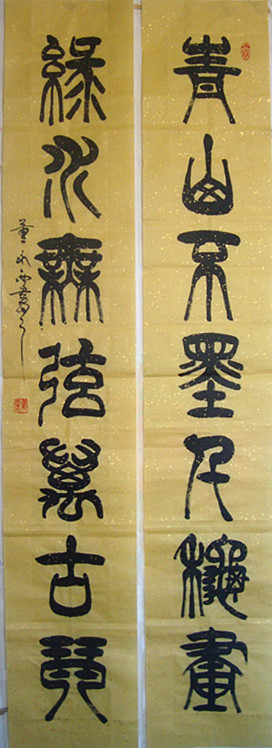 青山不墨千龝畫
綠水無弦萬古琴